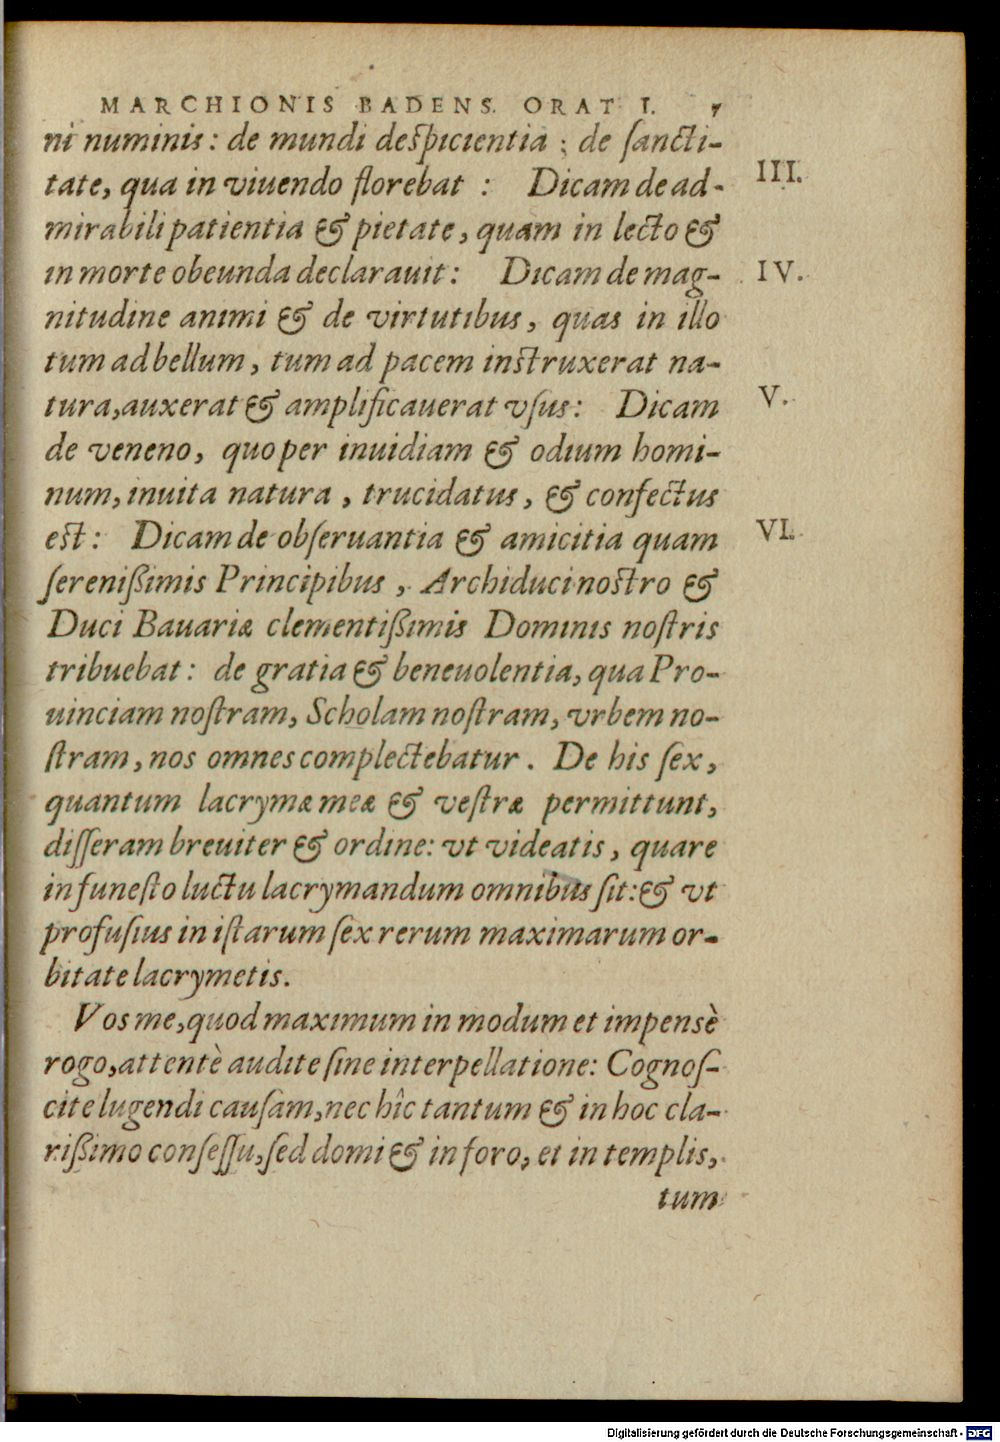 MARCHIONIS BADENS. ORAT I. 7
ni numinis: de mundi despicientia ; de sancti-
tate, qua in viuendo florebat : Dicam de ad-
III.
mirabili patientia & pietate, quam in lecto &
in morte obeunda declarauit: Dicam de mag-
IV.
nitudine animi & de virtutibus, quas in illo
tum ad bellum, tum ad pacem instruxerat na-
tura, auxerat & amplificauerat vsus: Dicam
V.
de veneno, quo per inuidiam & odium homi-
num, inuita natura, trucidatus, & confectus
est: Dicam de obseruantia & amicitia quam
VI.
serenißimis Principibus, Archiduci nostro &
Duci Bauariæ clementißimis Dominis nostris
tribuebat: de gratia & beneuolentia, qua Pro-
uinciam nostram, Scholam nostram, vrbem no-
stram, nos omnes complectebatur. De his sex,
quantum lacrymæ meæ & vestræ permittunt,
disseram breuiter & ordine: vt videatis, quare
in funesto luctu lacrymandum omnibus sit: & vt
profusius in istarum sex rerum maximarum or-
bitate lacrymetis.
Vos me, quod maximum in modum et impensè
rogo, attentè audite sine interpellatione: Cognos-
cite lugendi causam, nec hîc tantum & in hoc cla-
rißimo consessu, sed domi & in foro, et in templis,
tum
Digitalisierung gefördert durch die Deutsche Forschungsgemeinschaft - DFG